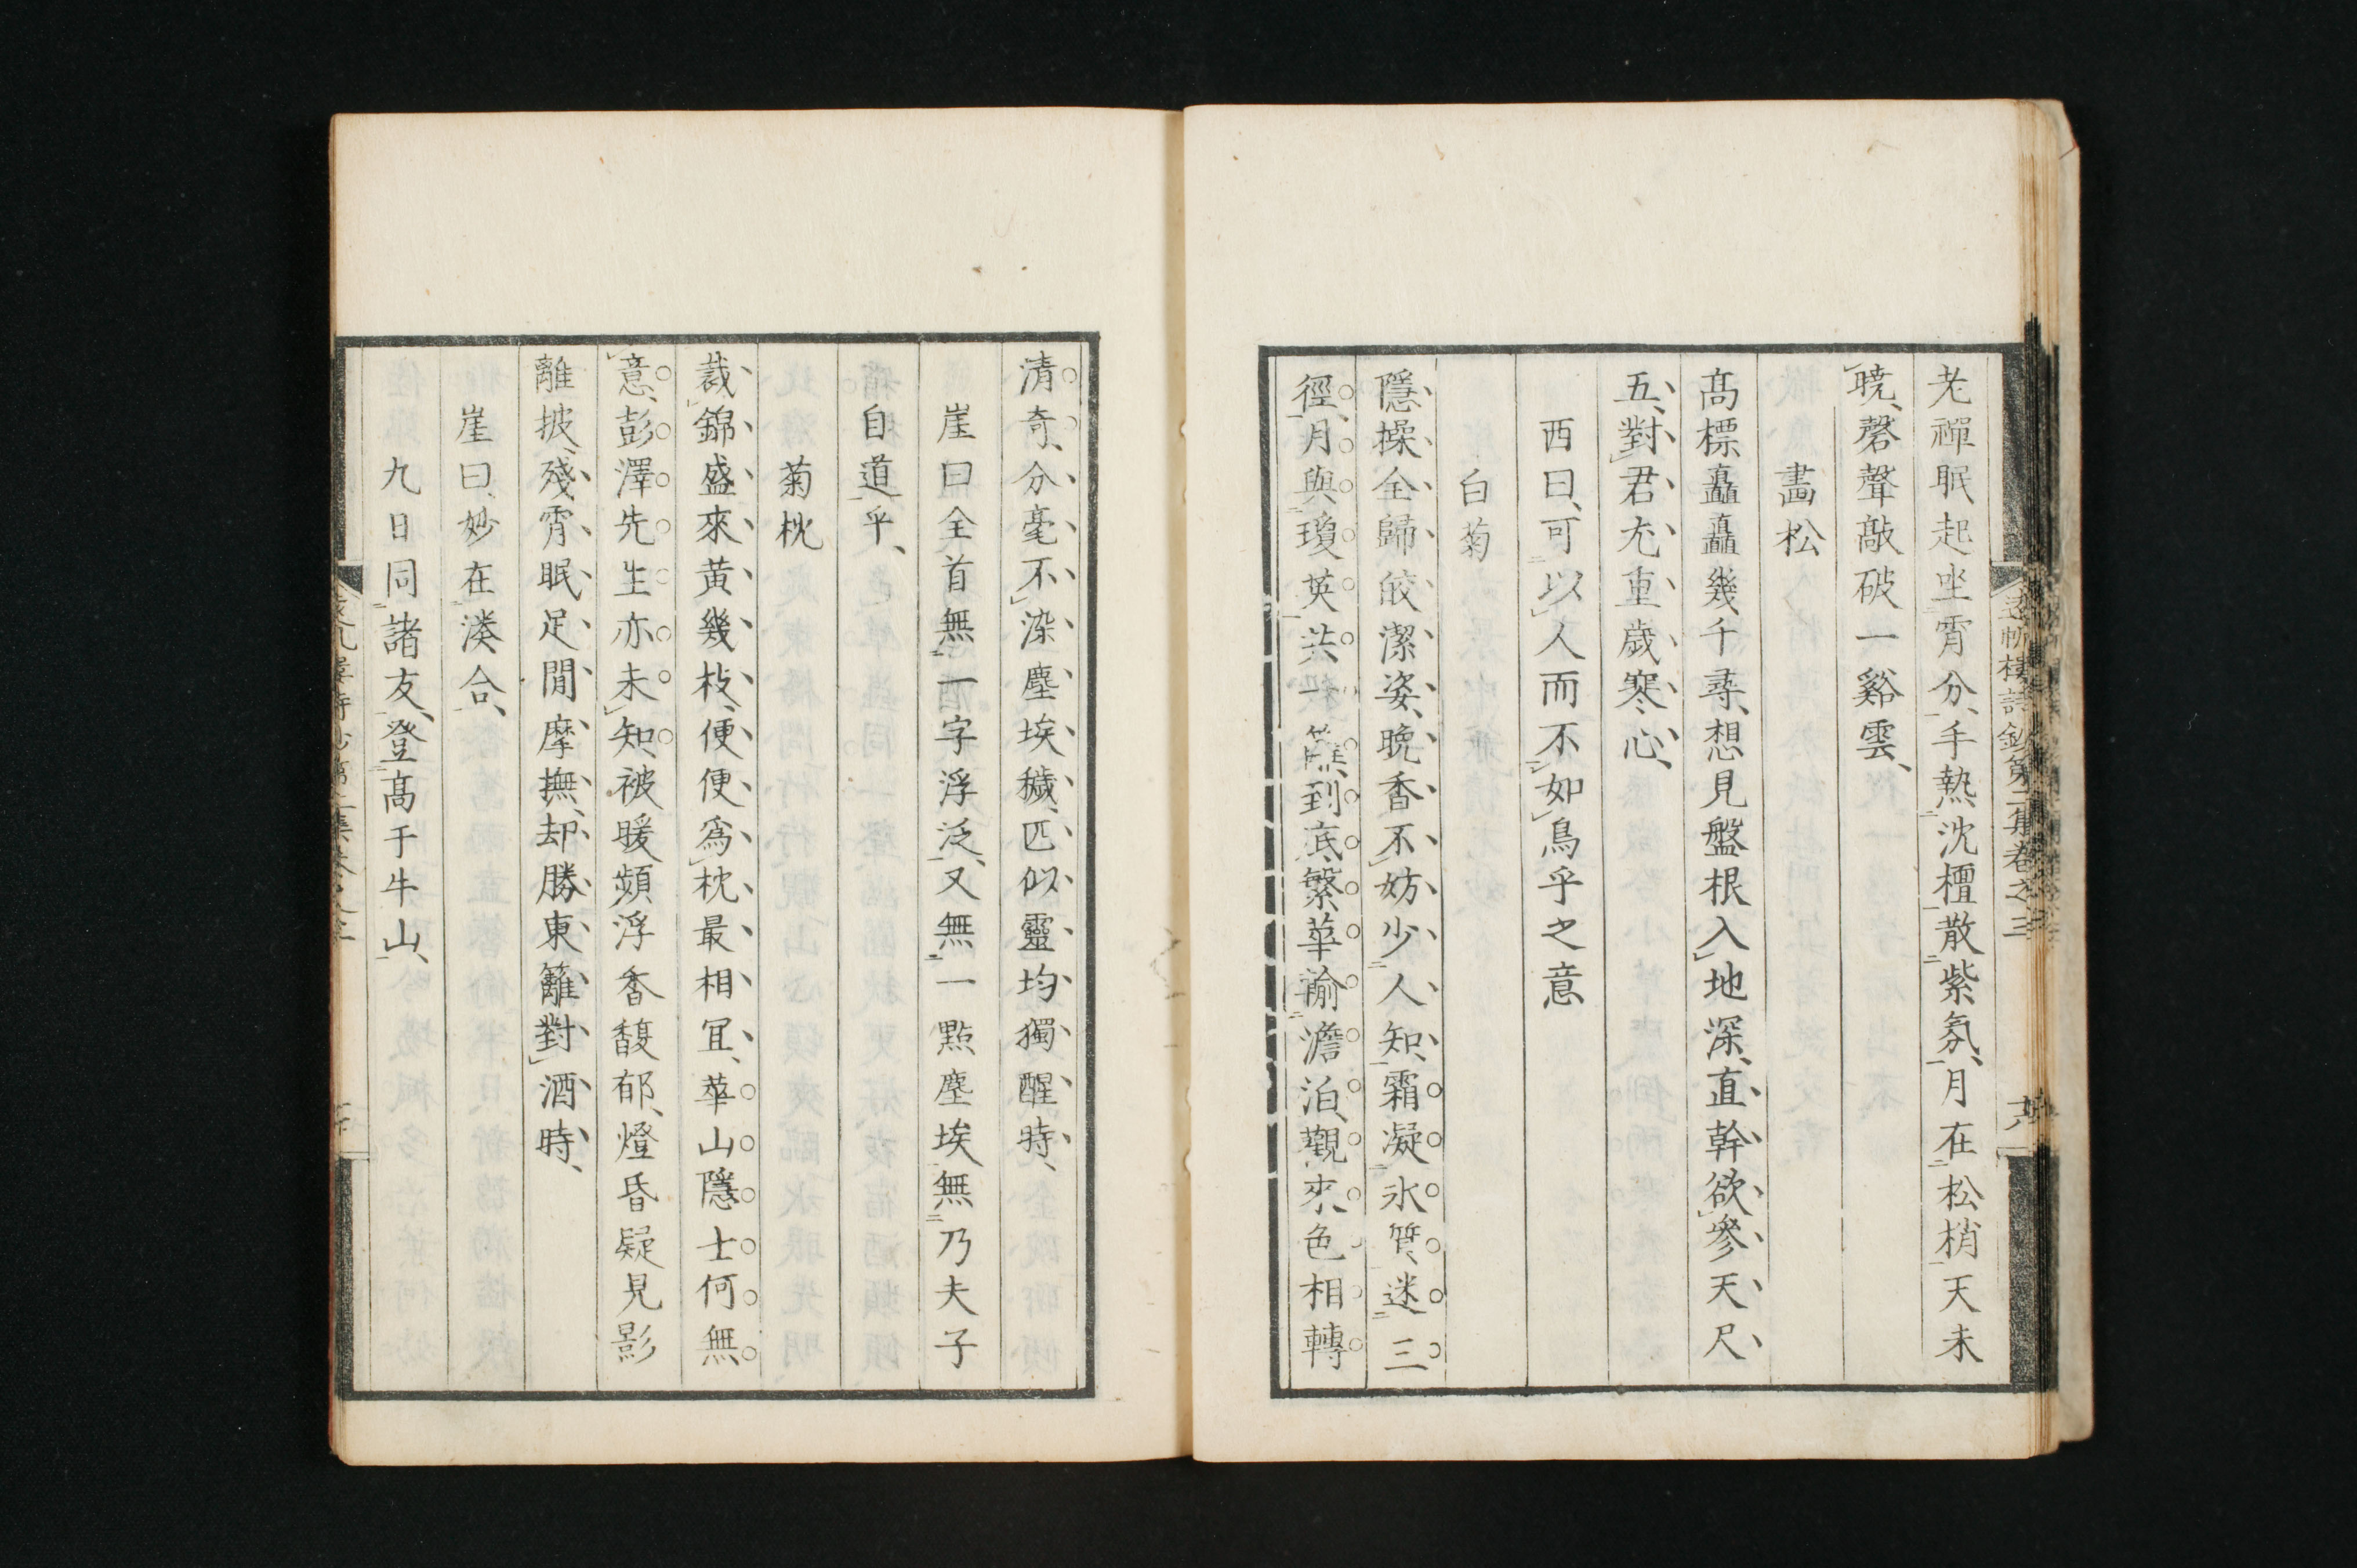 老禪眠起坐霄分、手熱沈檀散紫氛、月在松梢天未
曉、磬聲敲破一谿雲、
畫松
髙標矗矗幾千尋、想見盤根入地深、直幹欲參天尺
五、對君尤重歲寒心、
西曰、可以人而不如鳥乎之意
白菊
隱操全歸皎潔姿、晩香不妨少人知、霜凝氷質迷三
徑、月與瓊英共一籬、到底繁華輸澹泊、觀來色相轉
清奇、分毫不染塵埃穢、匹似靈均獨醒時、
崖曰全首無一字浮泛、又無一點塵埃無乃夫子
自道乎、
菊枕
裁錦盛來黃幾枝、便便爲枕最相冝、華山隱士何無
意、彭澤先生亦未知、被暖頻浮香馥郁、燈昏疑見影
離披、殘霄眠足閒摩撫、却勝東籬對酒時、
崖曰、妙在湊合、
九日同諸友、登髙于牛山、